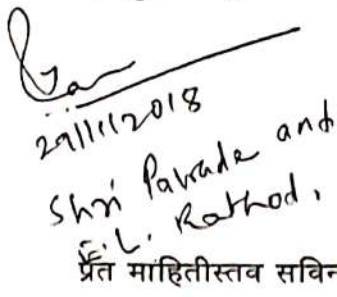 29/11/2018
Shri Parrade and
E. L. Rathod,
प्रत माहितीस्तव सविन